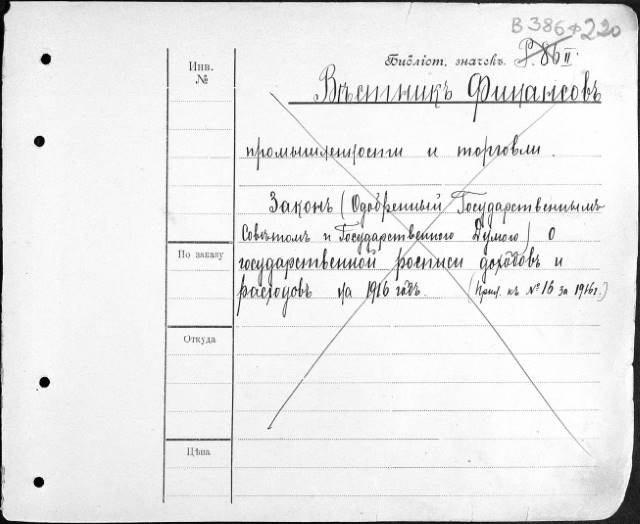 В 386 ф 220
Библіот. значекъ. Р. 86 II.
Инв.
№
Вѣстникъ Финансовъ
промышленности и торговли.
Законъ (Одобренный Государственнымъ
Совѣтомъ и Государственного Думою) о
По заказу
государственной росписи доходовъ и
расходовъ на 1916 годъ. (Прил. къ № 16 за 1916 г.)
Откуда
Цѣна